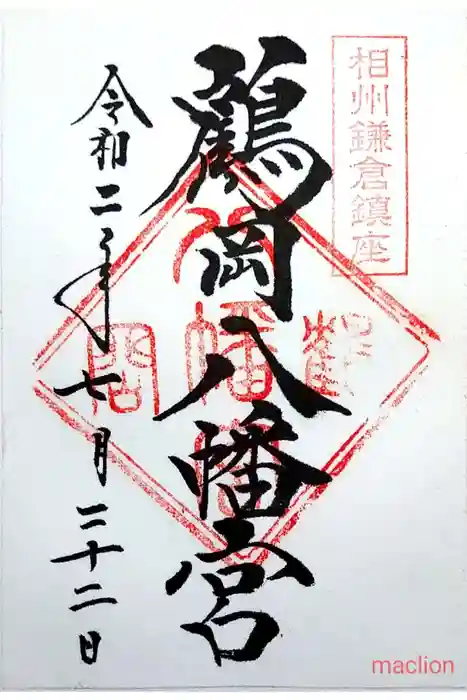 相州鎌倉鎮座
鶴岡八幡宮
令和二年七月二十二日
maclion